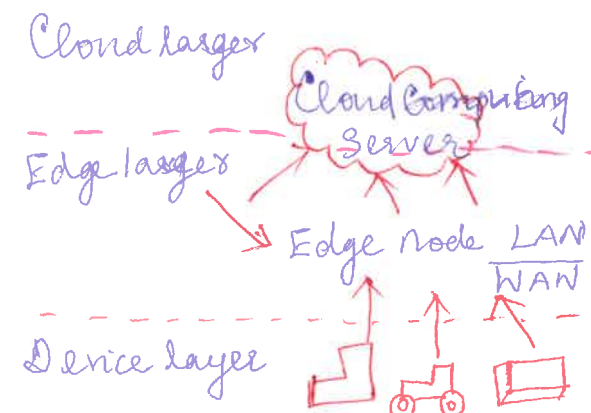 Cloud larger
Cloud Computing
Server
Edge larger
Edge node LAN
WAN
Device layer